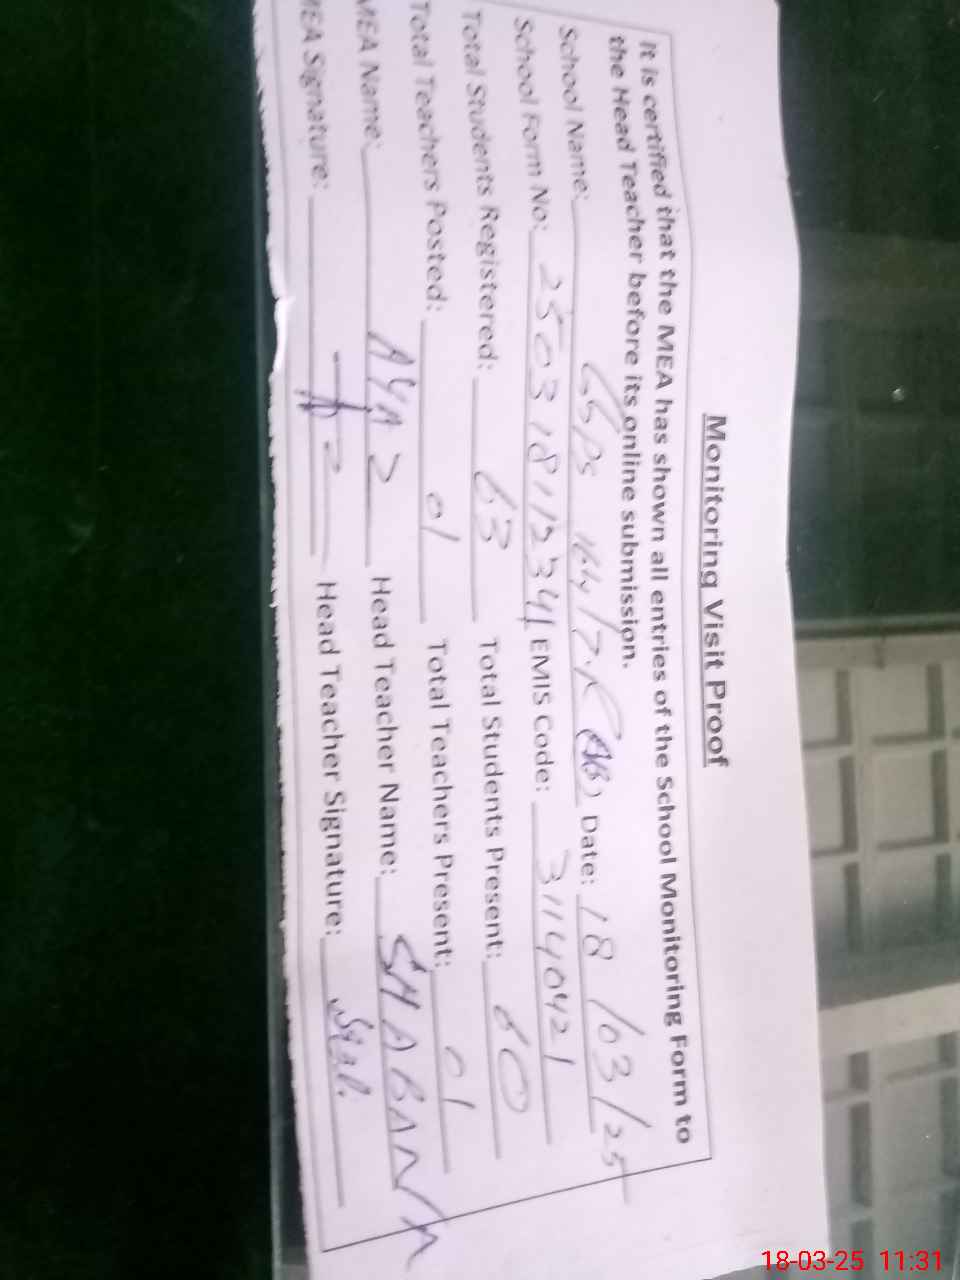 Monitoring Visit Proof
It is certified that the MEA has shown all entries of the School Monitoring Form to
the Head Teacher before its online submission.
School Name: GGPS 164/7-R (AB) Date: 18/03/25
School Form No: 250318112341 EMIS Code: 31140421
Total Students Registered: 63 Total Students Present: 60
Total Teachers Posted: 01 Total Teachers Present: 01
MEA Name: AYAZ Head Teacher Name: SHABANA
MEA Signature: Head Teacher Signature:
18-03-25 11:31